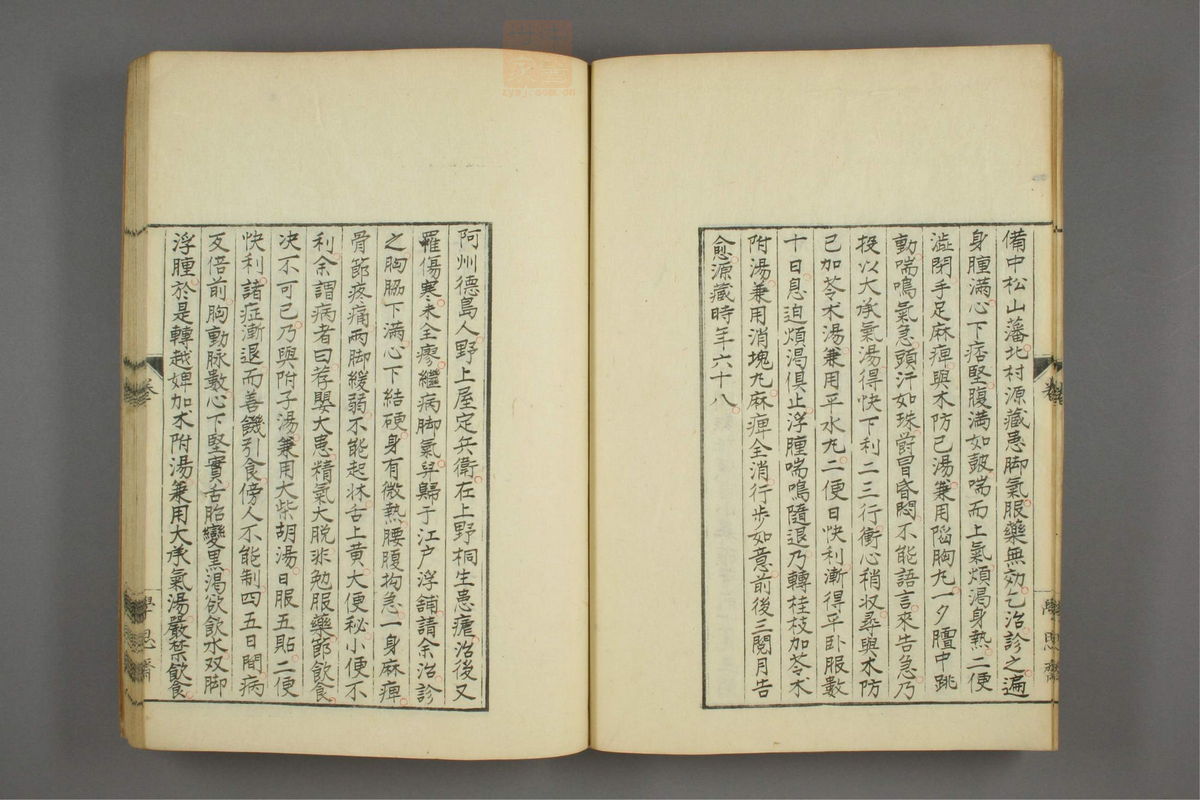 備中松山藩北村源藏患脚氣服藥無効乞治診之遍
身腫滿心下痞堅腹滿如皷喘而上氣煩渴身熱二便
澁閉手足麻痺與木防己湯兼用陷胸丸一夕膻中跳
動喘鳴氣急頭汗如珠欝冒昏悶不能語言來告急乃
投以大承氣湯得快下利二三行衝心稍収尋與木防
己加苓朮湯兼用平水丸二便日快利漸得平卧服數
十日息迫煩渴俱止浮腫喘鳴隨退乃轉桂枝加苓朮
附湯兼用消塊丸麻痺全消行步如意前後三閱月告
愈源藏時年六十八
阿州德島人野上屋定兵衛在上野桐生患瘧治後又
罹傷寒未全瘳繼病脚氣舁歸于江户浮舗請余治診
之胸脇下滿心下結硬身有微熱腰腹拘急一身麻痺
骨節疼痛兩脚緩弱不能起牀舌上黄大便秘小便不
利余謂病者曰荐嬰大患精氣大脱非勉服藥節飲食
决不可已乃與附子湯兼用大柴胡湯日服五貼二便
快利諸症漸退而善饑引食傍人不能制四五日間病
反倍前胸動脉數心下堅實舌胎變黒渴欲飲水双脚
浮腫於是轉越婢加朮附湯兼用大承氣湯嚴禁飲食
學思齋